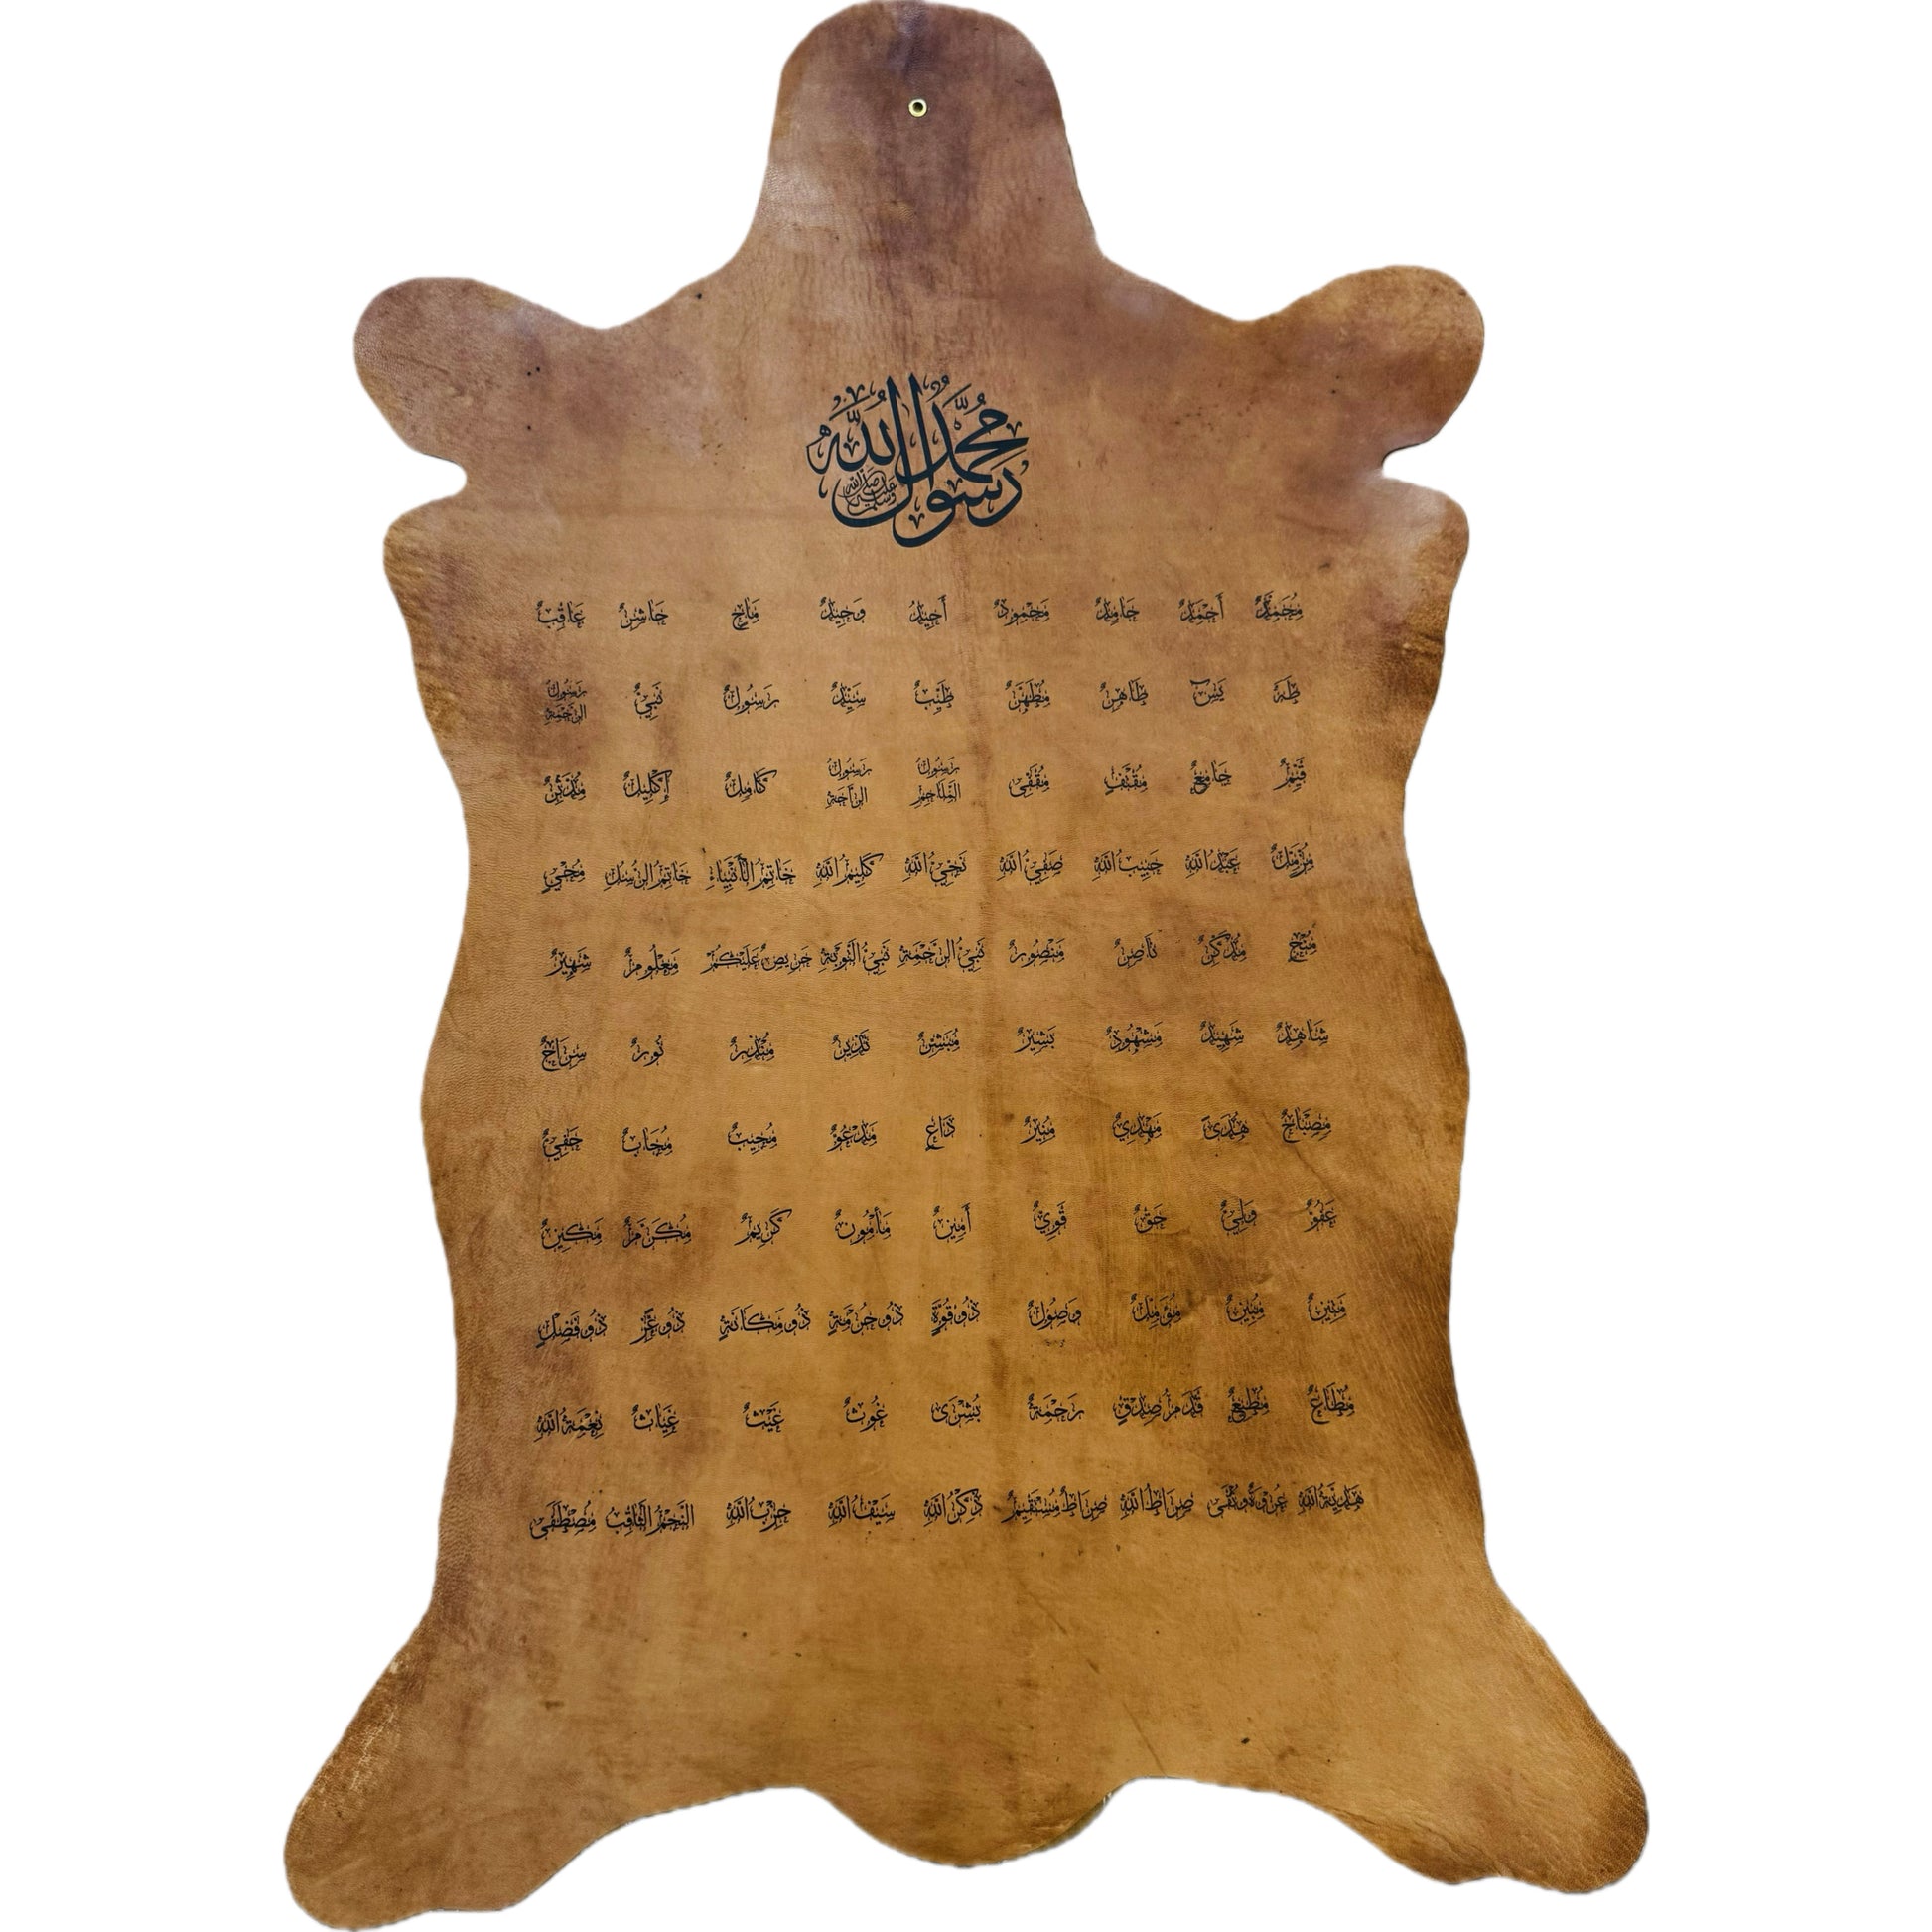 محمد رسول الله صلى الله عليه وسلم
مُحَمَّدٌ أَحْمَدٌ حَامِدٌ مَحْمُودٌ أَحِيدٌ وَحِيدٌ مَاحٍ حَاشِرٌ عَاقِبٌ
طَهَ يَسٓ طَاهِرٌ مُطَهَّرٌ طَيِّبٌ سَيِّدٌ رَسُولٌ نَبِيٌّ رَسُولُ الرَّحْمَةِ
قَيِّمٌ جَامِعٌ مُقْتَفٍ مُقَفَّى رَسُولُ الْمَلَاحِمِ رَسُولُ الرَّاحَةِ كَامِلٌ إِكْلِيلٌ مُدَّثِّرٌ
مُزَّمِّلٌ عَبْدُ اللَّهِ حَبِيبُ اللَّهِ صَفِيُّ اللَّهِ نَجِيُّ اللَّهِ كَلِيمُ اللَّهِ خَاتِمُ الْأَنْبِيَاءِ خَاتِمُ الرُّسُلِ مُحْيِي
مُنْجٍ مُذَكِّرٌ نَاصِرٌ مَنْصُورٌ نَبِيُّ الرَّحْمَةِ نَبِيُّ التَّوْبَةِ حَرِيصٌ عَلَيْكُمْ مَعْلُومٌ شَهِيرٌ
شَاهِدٌ شَهِيدٌ مَشْهُودٌ بَشِيرٌ مُبَشِّرٌ نَذِيرٌ مُنْذِرٌ نُورٌ سِرَاجٌ
مِصْبَاحٌ هُدَىً مَهْدِيٌّ مُنِيرٌ دَاعٍ مَدْعُوٌّ مُجِيبٌ مُجَابٌ حَفِيٌّ
عَفُوٌّ وَلِيٌّ حَقٌّ قَوِيٌّ أَمِينٌ مَأْمُونٌ كَرِيمٌ مُكَرَّمٌ مَكِينٌ
مَتِينٌ مُبِينٌ مُؤَمِّلٌ وَصُولٌ ذُو قُوَّةٍ ذُو حُرْمَةٍ ذُو مَكَانَةٍ ذُو عِزٍّ ذُو فَضْلٍ
مُطَاعٌ مُطِيعٌ قَدَمُ صِدْقٍ رَحْمَةٌ بُشْرَى غَوْثٌ غَيْثٌ غِيَاثٌ نِعْمَةُ اللَّهِ
هَدِيَّةُ اللَّهِ عُرْوَةٌ وُثْقَى صِرَاطُ اللَّهِ صِرَاطٌ مُسْتَقِيمٌ ذِكْرُ اللَّهِ سَيْفُ اللَّهِ حِزْبُ اللَّهِ النَّجْمُ الثَّاقِبُ مُصْطَفَى